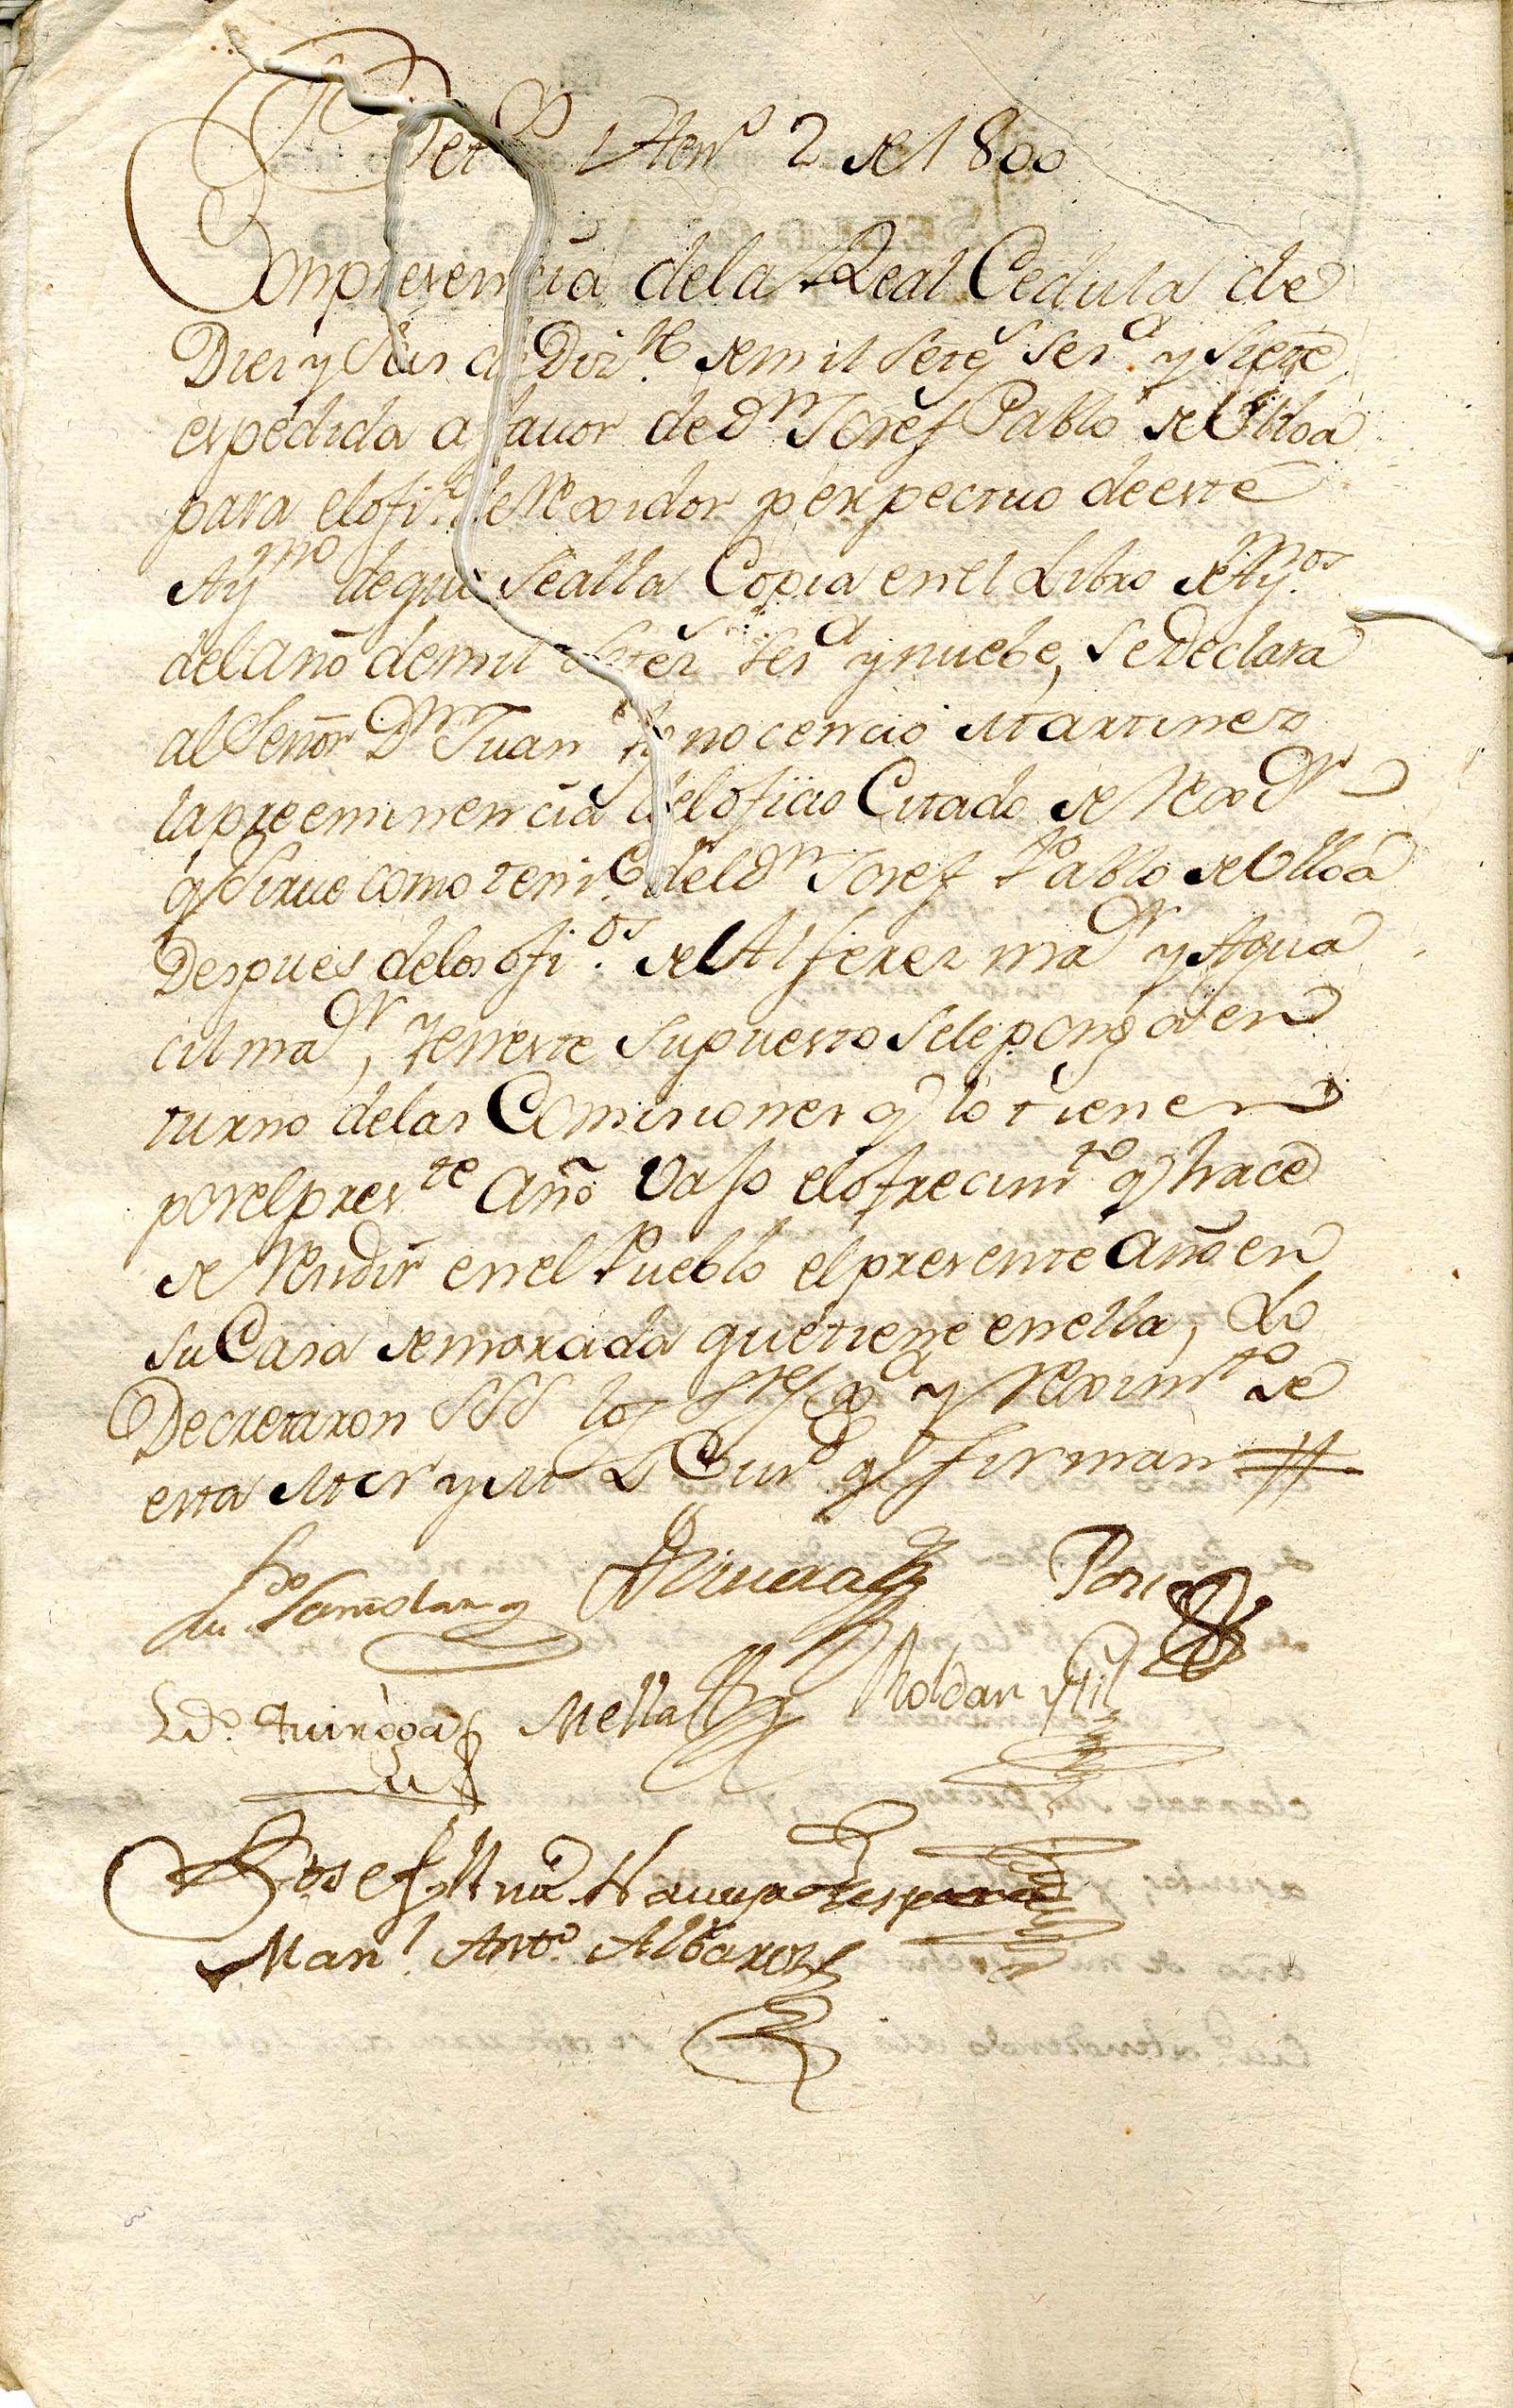 2 de 1800
Con presencia dela Real Cedula de
Diez y Seis de Diz.re de mil Setez Ses.a y Siete
expedida a fauor de Dn Josef Pablo de Ulloa
para el ofi.o de Rexidor perpectuo de este
Ay.mto de que Sealla Copia en el Libro de Ay.mos
del año de mil Setez Ses.a y nuebe, Se Declara
al Señor Dn Juan Ygnocencio Martinez
la preeminencia del oficio Citado de Rexdr
q Sirue como teni.e del Dn Josef Pablo de Ulloa
Despues delos ofi.os de Alferez mar y Agua
cil mar, y en este Supuesto Sele ponga en
turno delas Comisiones q lo tienen
por el press.te año vajo el ofrecim.to q hace
de Rendir en el Pueblo el presente año en
su Casa de morada que tiene en ella, Lo
Decretaron SSS los Just.a y Reximto de
esta M N y M L Ciud q firman
Riuera
Ldo. Quiroga Mella Roldan y Gil
Josef
Manl. Anto. Albarez